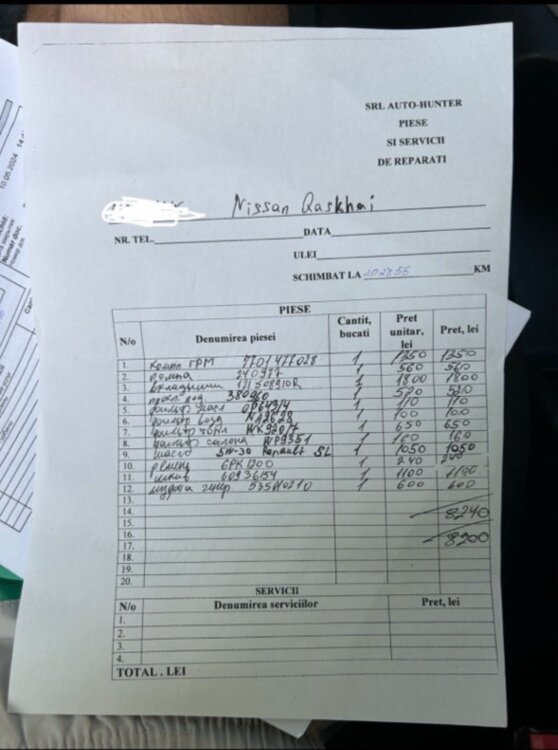 SRL AUTO-HUNTER
PIESE
SI SERVICII
DE REPARATI
Nissan Qaskhai
NR. TEL. DATA
ULEI
SCHIMBAT LA 202856 KM
PIESE
N/o Denumirea piesei Cantit, bucati Pret unitar, lei Pret, lei
1. компл ГРМ 7701477028 1 1350 1350
2. помпа 240987 1 560 560
3. вкладыши 1 1800 1800
4. прокл под 380960 1 520 520
5. фильтр масл OP643/4 1 110 110
6. фильтр возд 1 100 100
7. фильтр топл WK920/7 1 650 650
8. фильтр салона WP9351 1 160 160
9. масло 5W-30 Renault 5L 1 1050 1050
10. ремень 6PK1200 1 240 240
11. шкив 1 1100 1100
12. муфта генер 535010210 1 600 600
13.
14. 8240
15.
16. 8200
17.
18.
19.
20.
SERVICII
N/o Denumirea serviciilor Pret, lei
1.
2.
3.
4.
TOTAL . LEI
10.05.2024